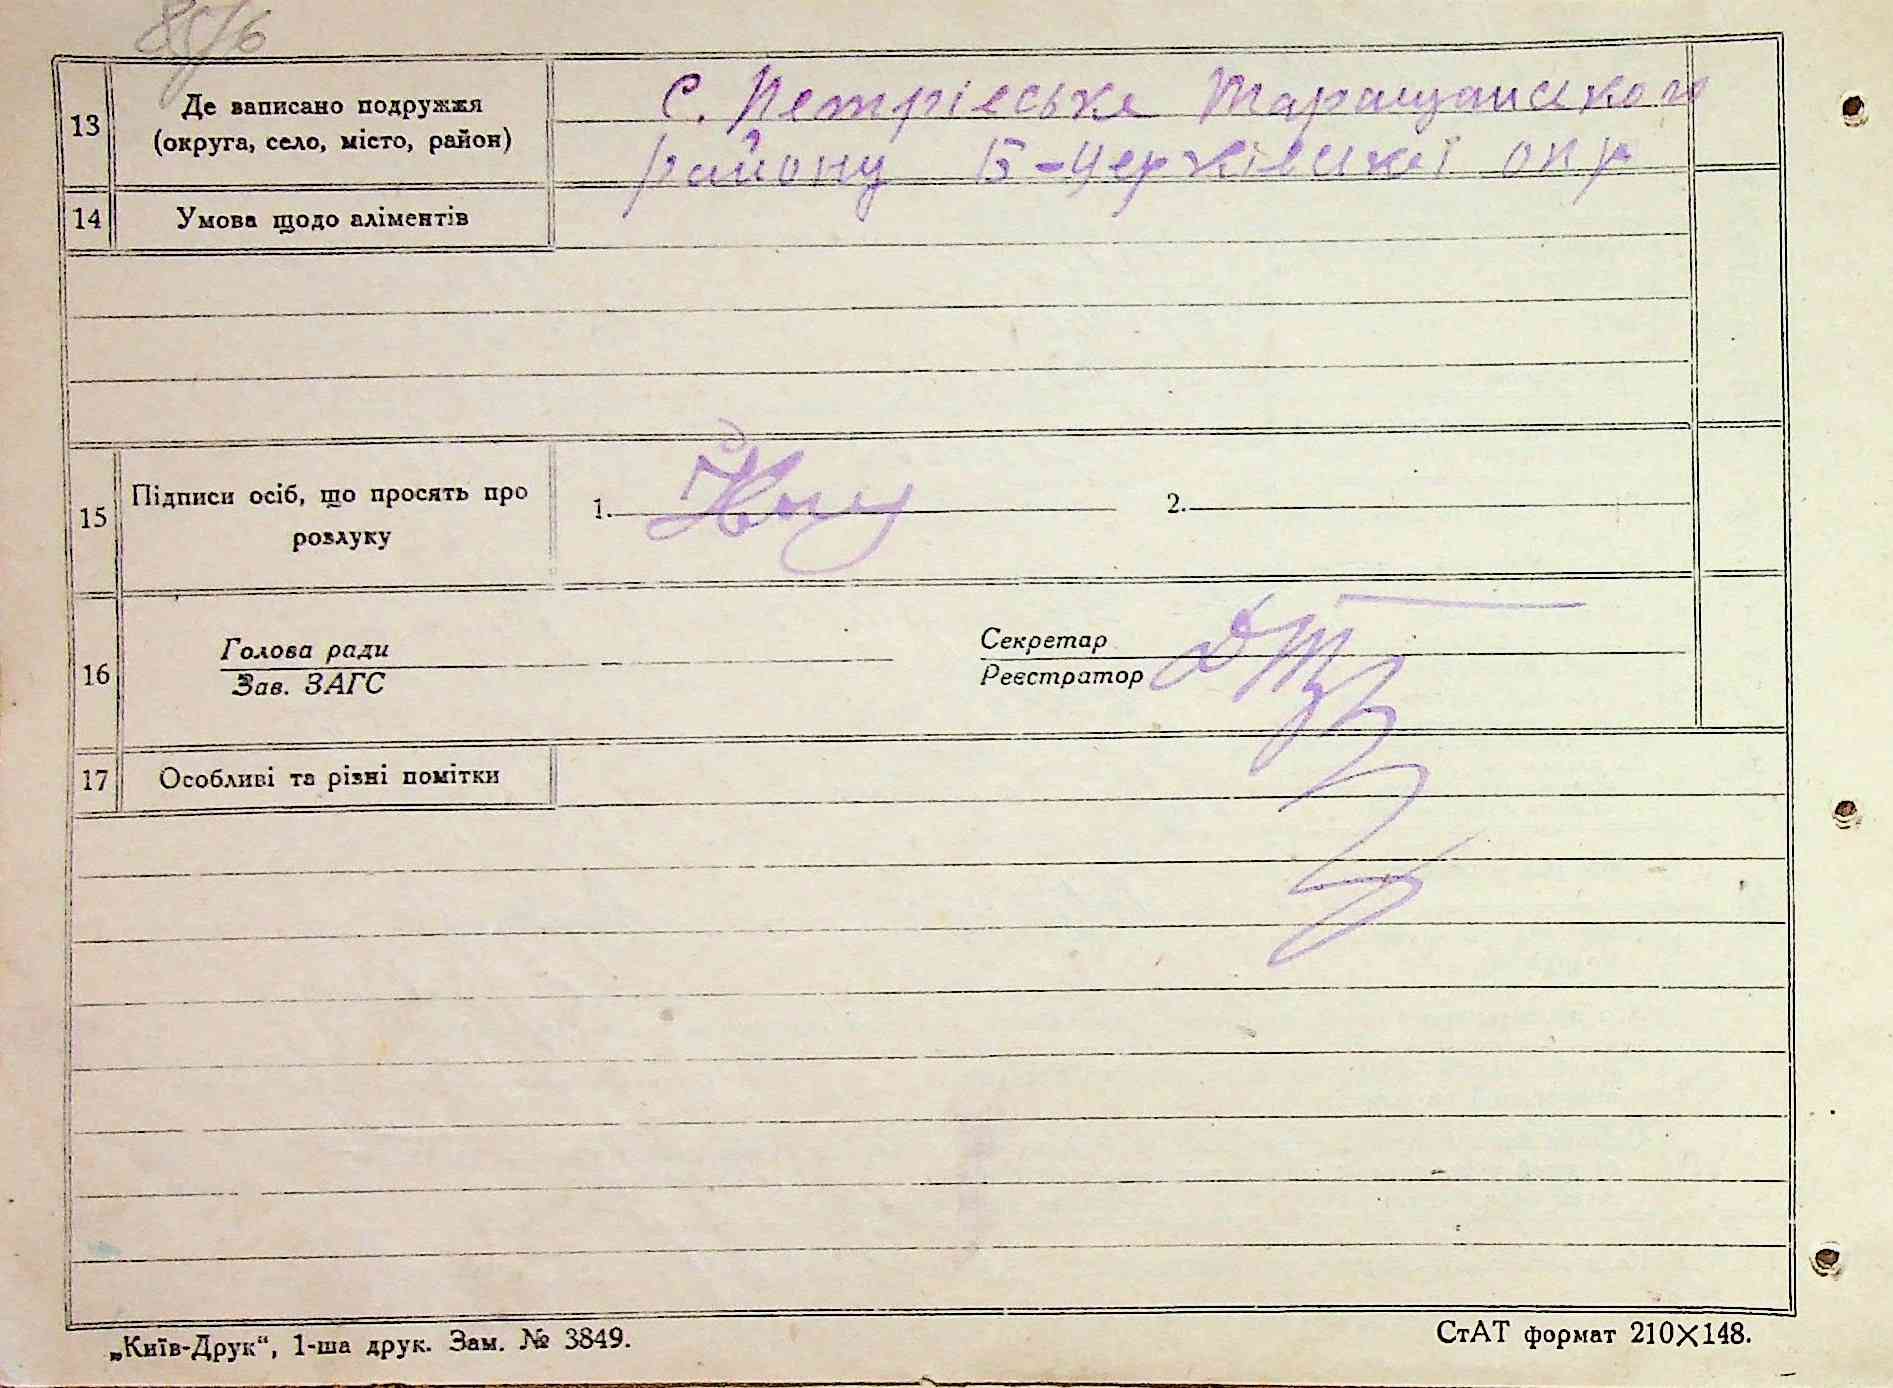 13
Де записано подружжя
(округа, село, місто, район)
с. Петрівське Таращанського
району Б-Церківської окр
14
Умова щодо аліментів
15
Підписи осіб, що просять про
розлуку
1.
2.
16
Голова ради
Зав. ЗАГС
Секретар
Реєстратор
17
Особливі та різні помітки
„Київ-Друк“, 1-ша друк. Зам. № 3849.
СтАТ формат 210×148.